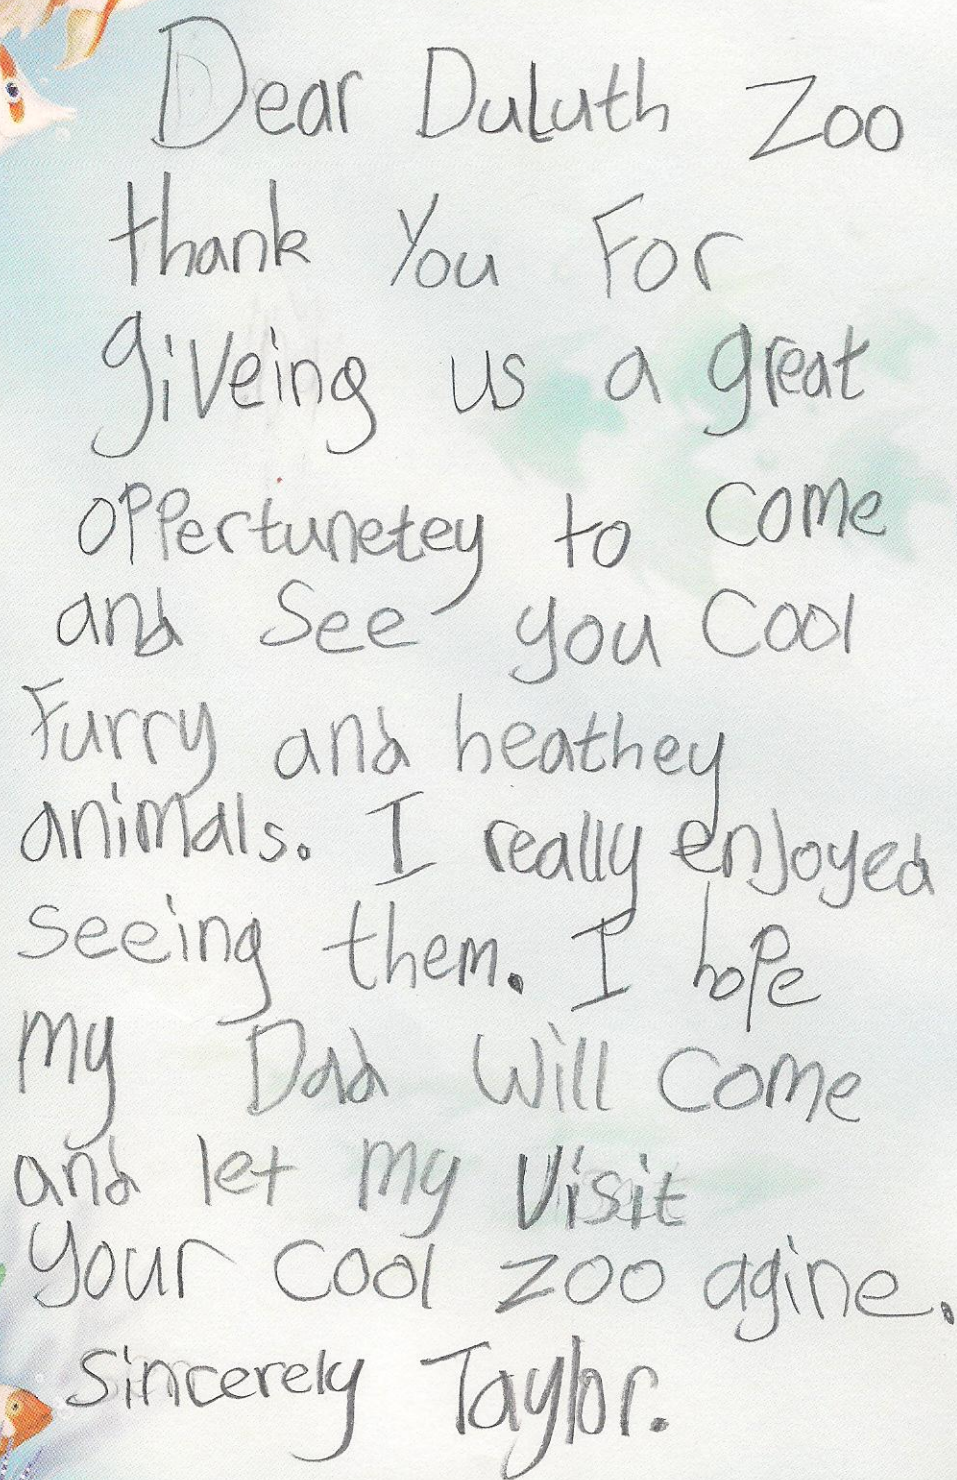 Dear Duluth Zoo
thank You For
giveing us a great
oppertunetey to come
and See you Cool
Furry and heathey
animals. I really enjoyed
seeing them. I hope
my Dad Will come
and let my Visit
your cool zoo agine.
Sincerely Taylor.